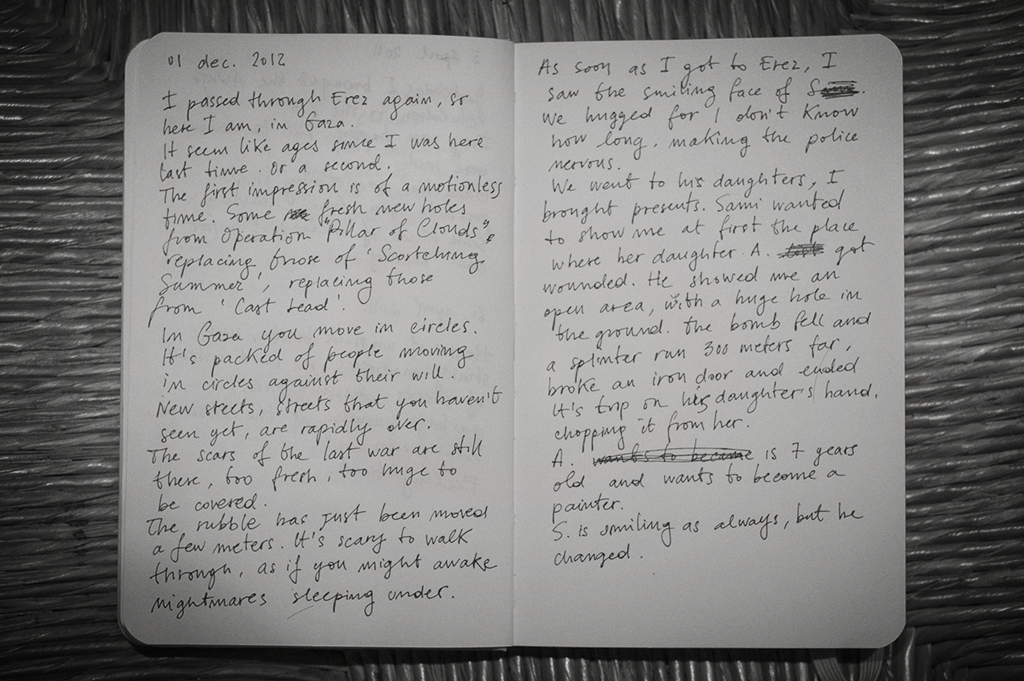 01 dec. 2012
I passed through Erez again, so
here I am, in Gaza.
It seem like ages since I was here
last time. Or a second.
The first impression is of a motionless
time. Some fresh new holes
from Operation "Pillar of Clouds",
replacing those of 'Scortching
Summer', replacing those
from 'Cast Lead'.
In Gaza you move in circles.
It's packed of people moving
in circles against their will.
New steets, streets that you haven't
seen yet, are rapidly over.
The scars of the last war are still
there, too fresh, too huge to
be covered.
The rubble has just been moved
a few meters. It's scary to walk
through, as if you might awake
nightmares sleeping under.
As soon as I got to Erez, I
saw the smiling face of S
We hugged for I don't know
how long, making the police
nervous.
We went to his daughters, I
brought presents. Sami wanted
to show me at first the place
where her daughter A. got
wounded. He showed me an
open area, with a huge hole in
the ground. The bomb fell and
a splinter run 300 meters far,
broke an iron door and ended
it's trip on his daughter's hand,
chopping it from her.
A. wants to become is 7 years
old and wants to become a
painter.
S. is smiling as always, but he
changed.